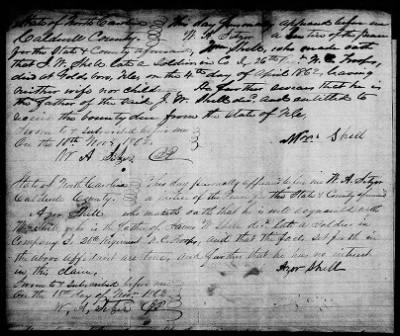 State of North Carolina } This day personally appeared before me
Caldwell County. } W. A. Sitzer a Justice of the peace
for the State & County aforesaid, Wm Shell, who made oath
that J. W. Shell late a Soldier in Co I, 26th Regt N. C. Troops,
died at Goldsboro, N.C. on the 4th day of April 1862, leaving
neither wife nor children. He further swears that he is
the father of the said J. W. Shell decd. and entitled to
receive the bounty due from the State of N.C.
Sworn to & Subscribed before me
On the 18th Nov. 1862. Wm Shell
W A Sitzer JP
State of North Carolina } This day personally appeared before me W. A. Sitzer
Caldwell County. } a justice of the Peace for the State & County aforesaid
Azor Shell who maketh oath that he is well acquainted with
Wm Shell who is the father of James W Shell decd. late a Soldier in
Company I, 26th Regiment N.C. Troops, and that the facts set forth in
the above affidavit are true, and further that he has no interest
in this claim.
Sworn to & Subscribed before me Azor Shell
on the 18th day of Nov. 1862
W. A. Sitzer JP